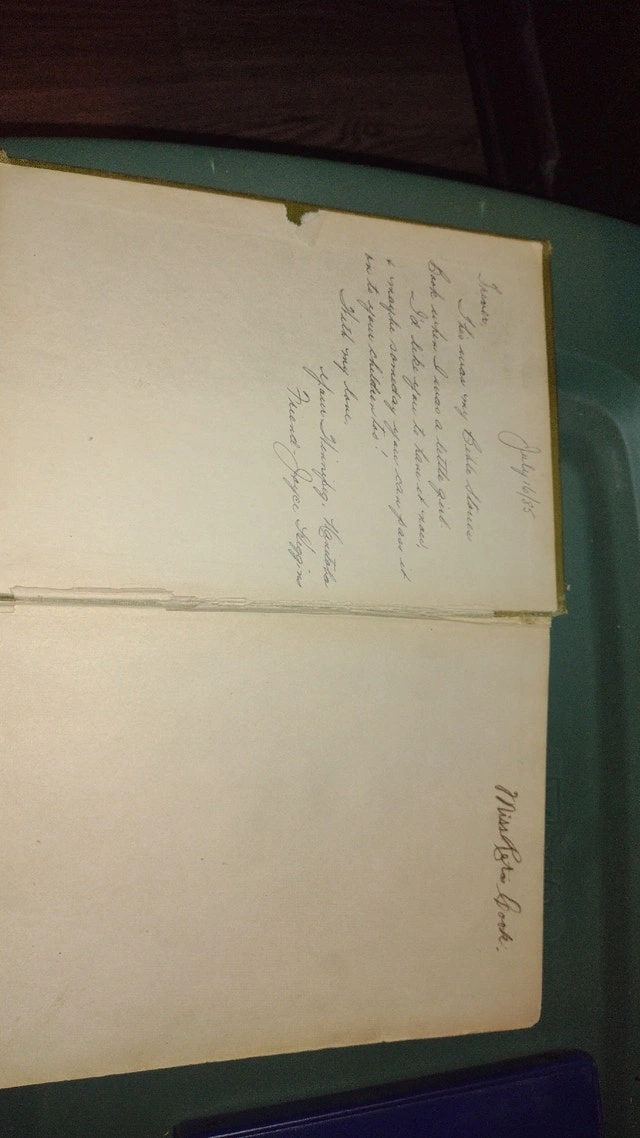 July 16/85
This was my Bible Stories
Book when I was a little girl.
I'd like you to have it now,
& maybe someday you can pass it
on to your children too!
With my love,
Your Winnipeg, Manitoba
Friend Joyce Higgins
Miss Cook.